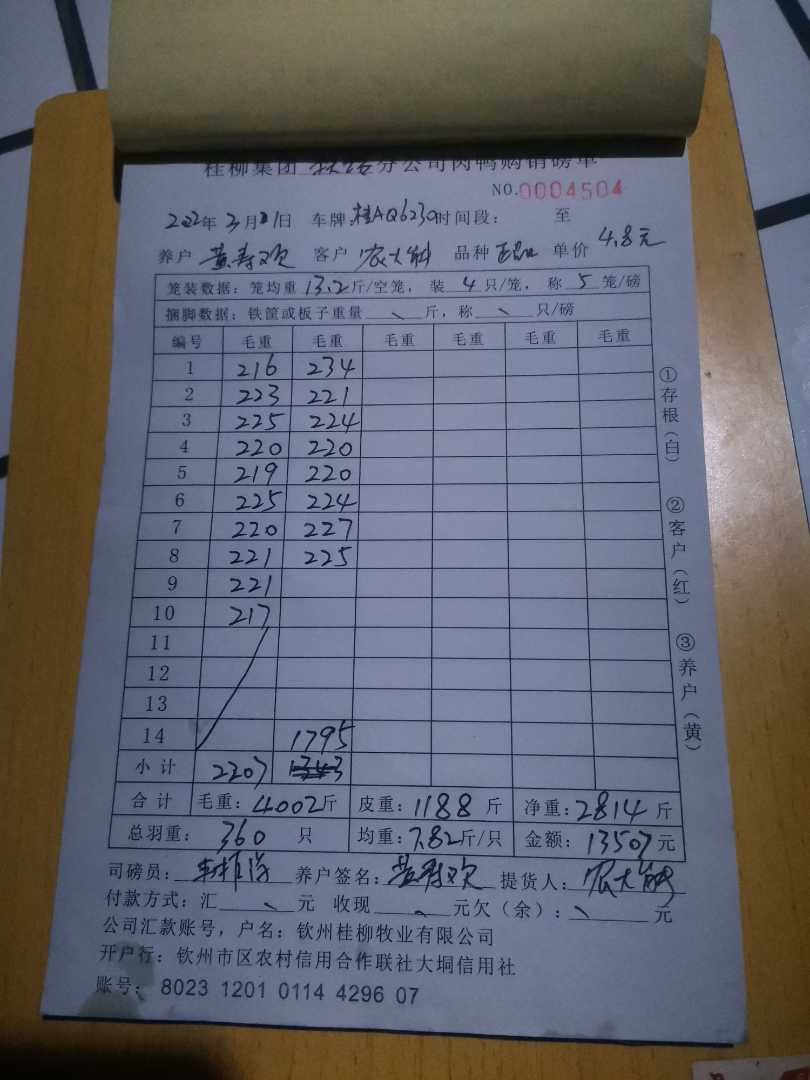 桂柳集团 钦州分公司肉鸭购销磅单
NO.0004504
2022年3月21日 车牌:桂AQ6230时间段: 至
养户 黄寿欢 客户 农大 品种 正品 单价 4.8元
笼装数据:笼均重 13.2斤/空笼, 装 4 只/笼, 称 5 笼/磅
捆脚数据:铁筐或板子重量 斤,称 只/磅
编号 毛重 毛重 毛重 毛重 毛重 毛重
1 216 234
2 223 221
3 225 224
4 220 220
5 219 220
6 225 224
7 220 227
8 221 225
9 221
10 217
11
12
13
14 1795
小计 2207 1343
合计 毛重:4002斤 皮重:1188斤 净重:2814斤
总羽重: 360 只 均重:7.82斤/只 金额:13507元
司磅员: 养户签名:黄寿欢 提货人:农大
付款方式:汇 元 收现 元欠(余): 元
公司汇款账号,户名:钦州桂柳牧业有限公司
开户行:钦州市区农村信用合作联社大垌信用社
账号: 8023 1201 0114 4296 07
①存根(白) ②客户(红) ③养户(黄)